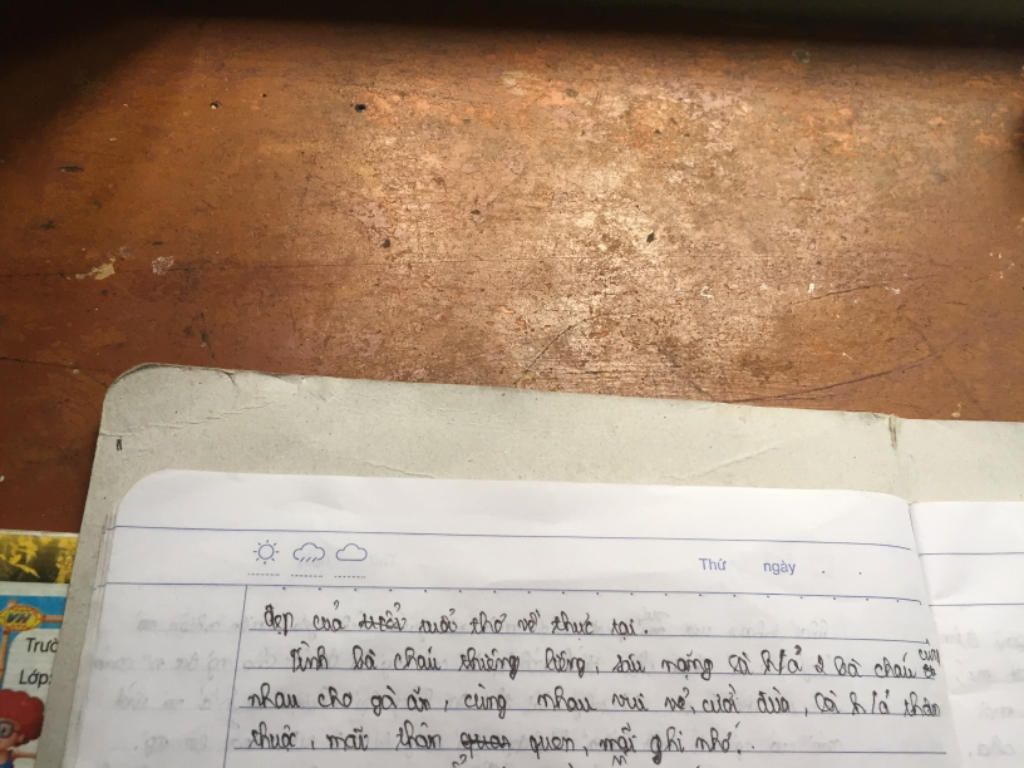 Thứ ngày . .
đẹp của tuổi thơ về thực tại.
Tình bà cháu thiêng liêng, sâu nặng là h/ả 2 bà cháu cùng
nhau cho gà ăn, cùng nhau vui vẻ, cười đùa, là h/ả thân
thuộc, mãi thân quen, mãi ghi nhớ.
HA
Trườ
Lớp: